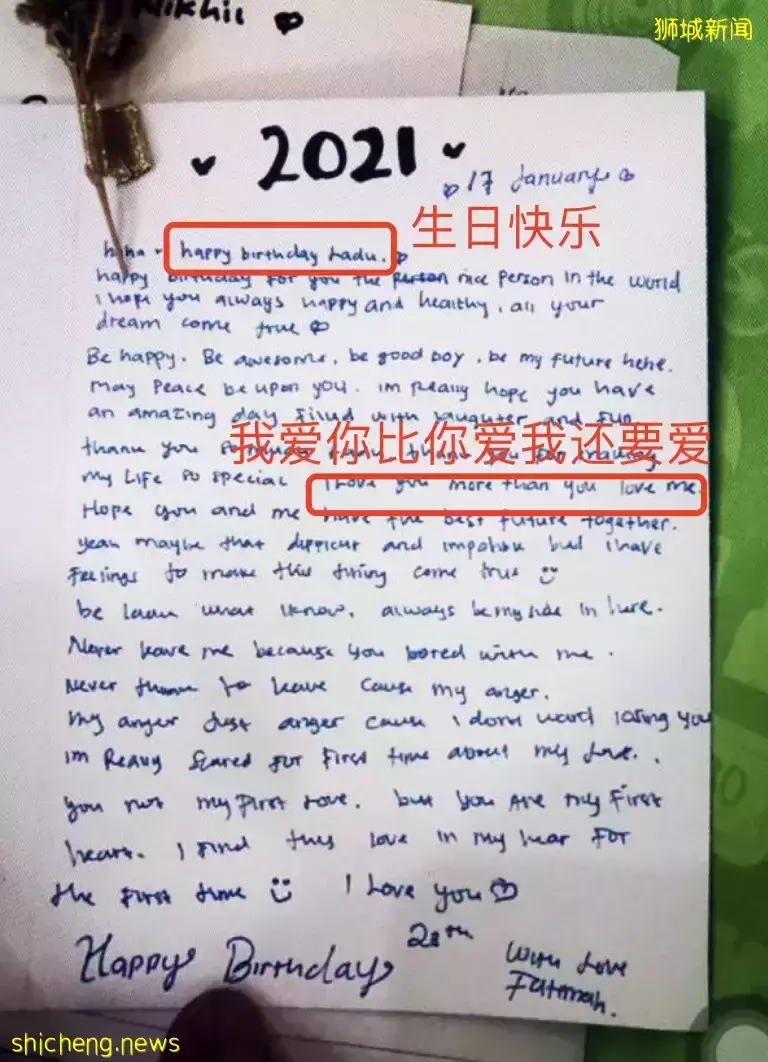 Nikhil
狮城新闻
2021
17 January
haha happy birthday Ladu.
生日快乐
happy birthday for you the person nice person in the world
I hope you always happy and healthy. all your
dream come true
Be happy. Be awesome. be good boy. be my future hehe.
may peace be upon you. im really hope you have
an amazing day filled with laughter and fun
我爱你比你爱我还要爱
thank you so much thank you for making
my life so special I love you more than you love me.
Hope you and me have the best future together.
yeah maybe that difficult and but I have
feelings to make this thing come true
be Ladu what I know. always be my side in
Never leave me because you bored with me.
Never to leave cause my anger.
my anger just anger cause I dont losing you
im Really Scared for first time about my Love..
you not my first Love. but you are my first
heart. I find this love in my hear for
the first time I Love you
Happy Birthday 28th
With Love
Fatimah.
shicheng.news